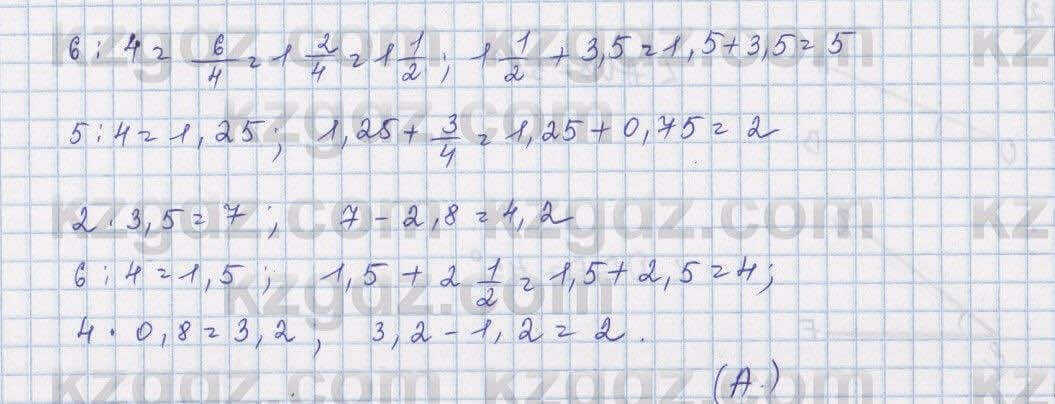 6 : 4 = 6/4 = 1 2/4 = 1 1/2 ; 1 1/2 + 3,5 = 1,5 + 3,5 = 5
5 : 4 = 1,25 ; 1,25 + 3/4 = 1,25 + 0,75 = 2
2 · 3,5 = 7 ; 7 - 2,8 = 4,2
6 : 4 = 1,5 ; 1,5 + 2 1/2 = 1,5 + 2,5 = 4 ;
4 · 0,8 = 3,2 , 3,2 - 1,2 = 2 .
(A.)
kzgdz.com